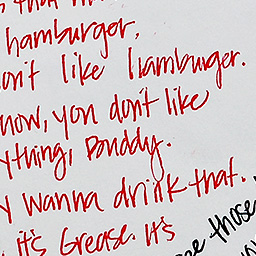 hamburger.
on't like hamburger.
now, you don't like
ything, Daddy.
y wanna drink that.
it's Grease. It's
those